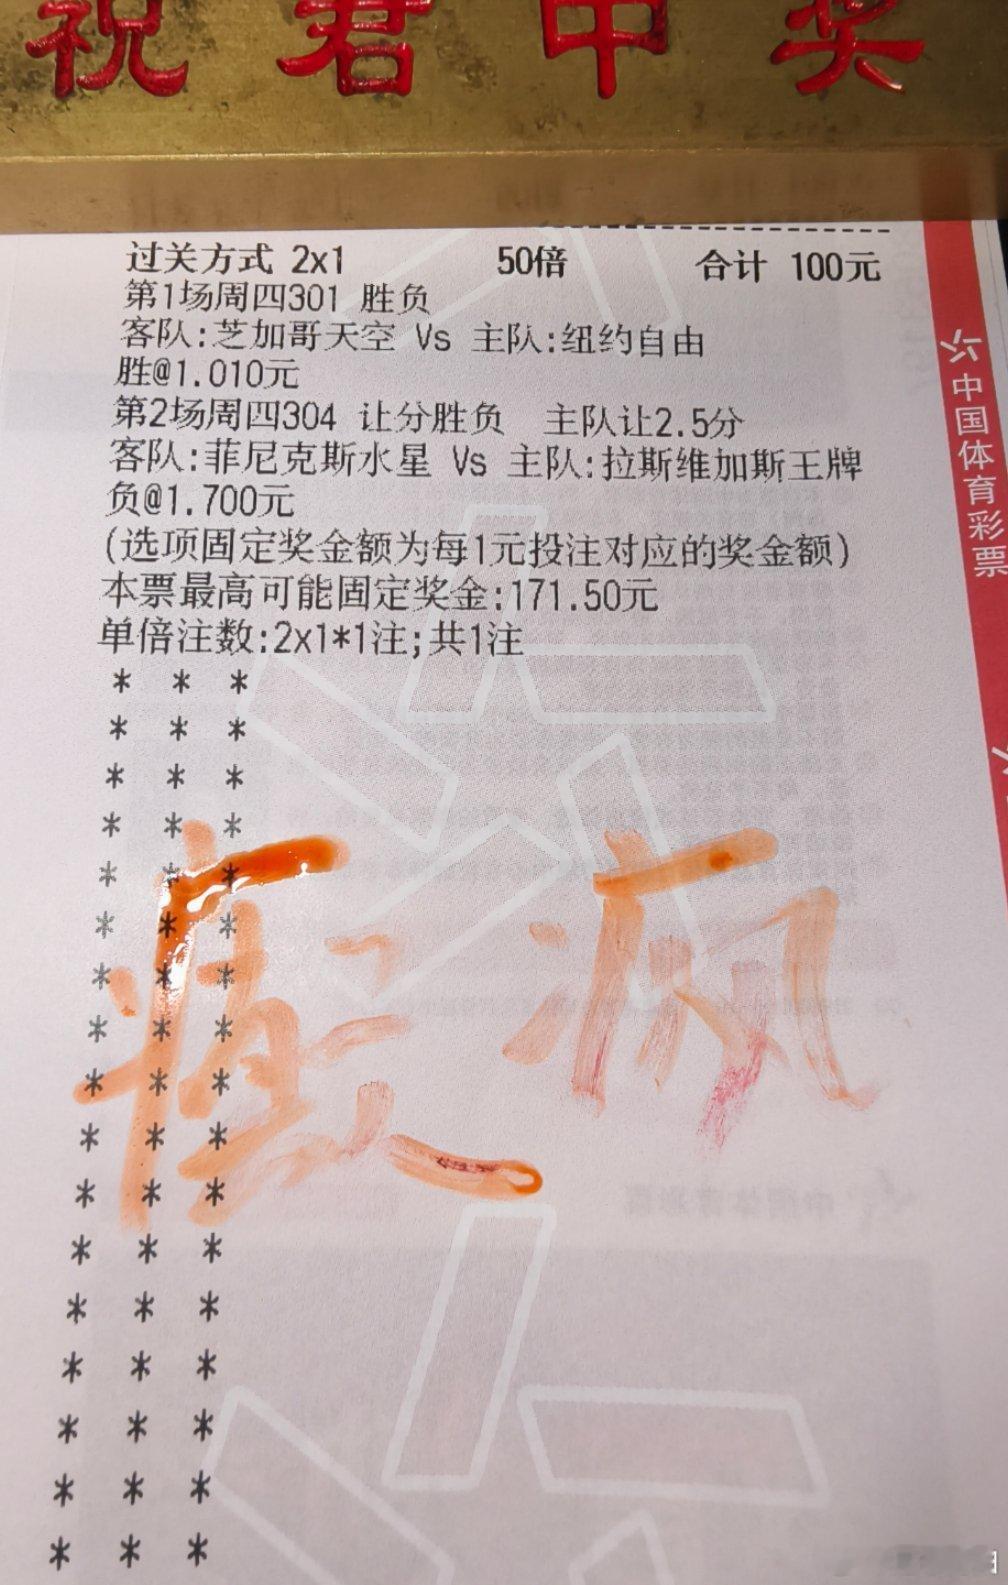 祝君中奖
过关方式 2x1 50倍 合计 100元
第1场周四301 胜负
客队:芝加哥天空 Vs 主队:纽约自由
胜@1.010元
第2场周四304 让分胜负 主队让2.5分
客队:菲尼克斯水星 Vs 主队:拉斯维加斯王牌
负@1.700元
(选项固定奖金额为每1元投注对应的奖金额)
本票最高可能固定奖金:171.50元
单倍注数:2x1*1注;共1注
* * *
* * *
* * *
* * *
* * *
* * *
* * *
* * *
* * *
* * *
* * *
* * *
* * *
* * *
* * *
* * *
* * *
中国体育彩票